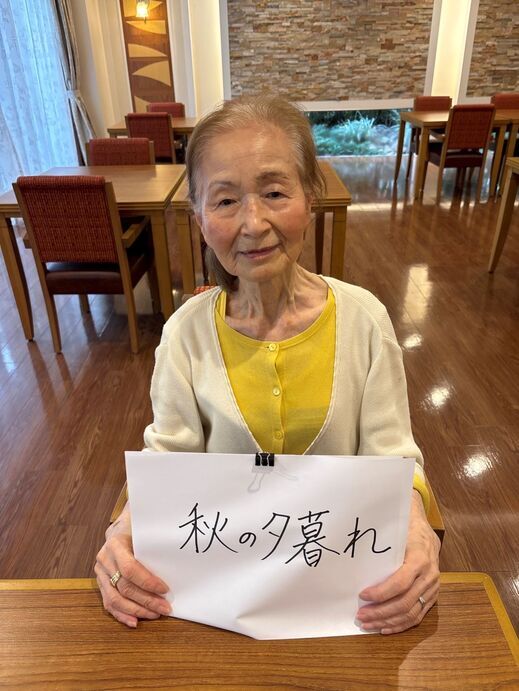 秋の夕暮れ